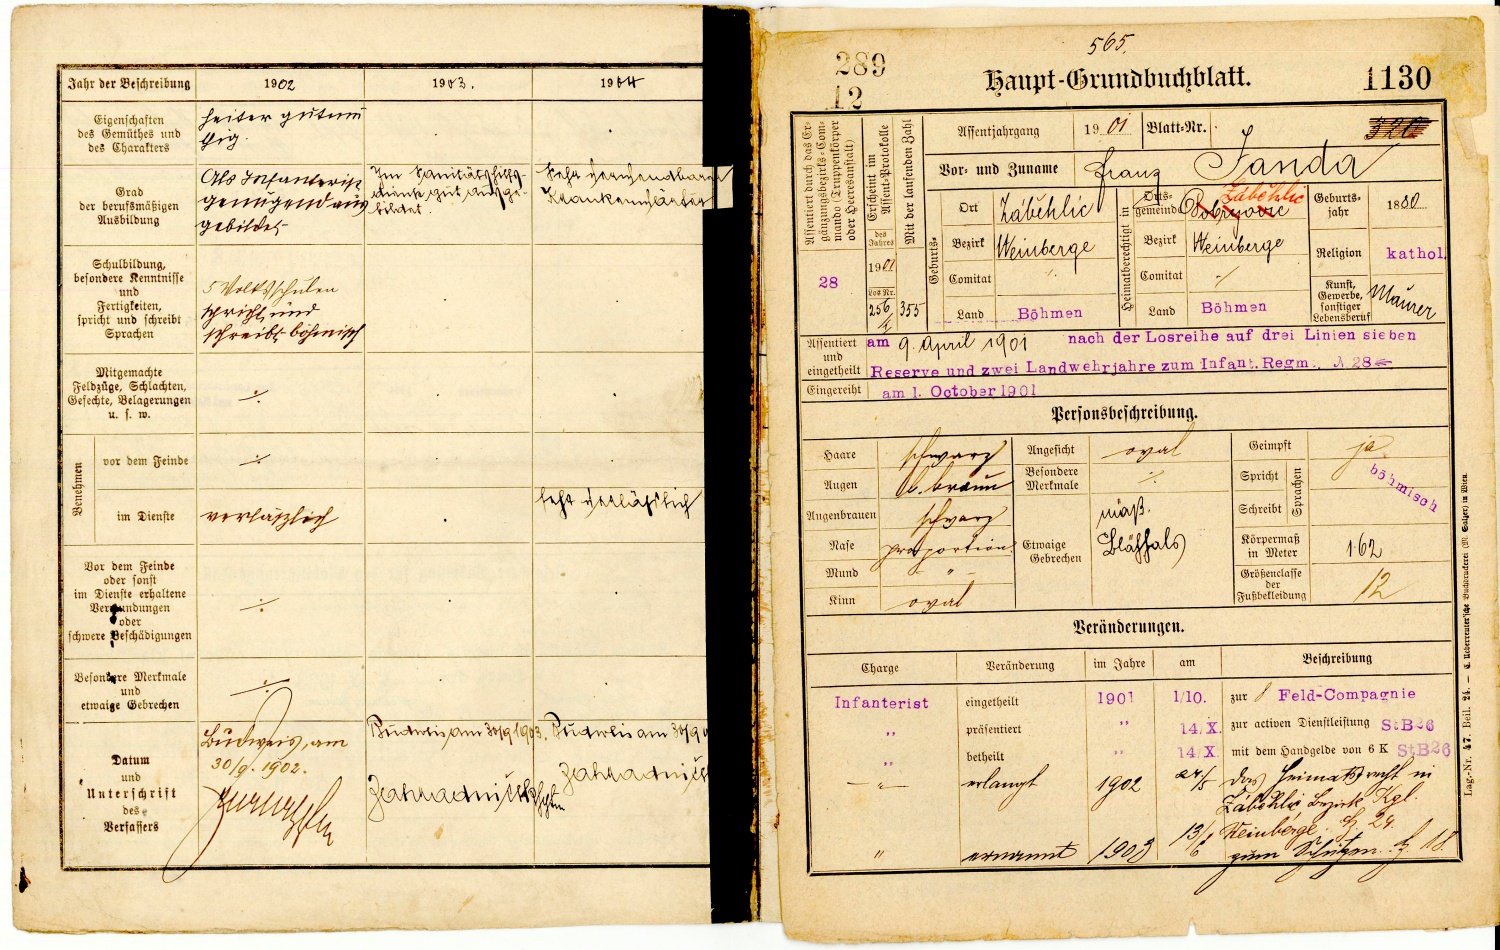 Jahr der Beschreibung 1902 1903. 1904
Eigenschaften des Gemüthes und des Charakters
heiter gutmü
thig.
Grad der berufsmäßigen Ausbildung
Als Infanterist
genügend aus
gebildet
Im Sanitätshilfs-
dienst gut ausge-
bildet.
Sehr verwendbarer
Krankenwärter
Schulbildung, besondere Kenntnisse und Fertigkeiten, spricht und schreibt Sprachen
5 Volksschulen
spricht und
schreibt böhmisch
Mitgemachte Feldzüge, Schlachten, Gefechte, Belagerungen u. s. w.
Benehmen
vor dem Feinde
im Dienste
verläßlich
sehr verläßlich
Vor dem Feinde oder sonst im Dienste erhaltene Verwundungen oder schwere Beschädigungen
Besondere Merkmale und etwaige Gebrechen
Datum und Unterschrift des Verfassers
Budweis, am
30/9. 1902.
Budweis am 30/9 1903.
Budweis am 30/9
565.
289
12
Haupt-Grundbuchblatt.
1130
Assentirt durch das Ergänzungsbezirks-Commando (Truppenkörper oder Heeresanstalt)
28
Erscheint im Assent-Protokolle
des Jahres
1901
Los Nr.
256
Mit der laufenden Zahl
355
Assentjahrgang 1901 Blatt-Nr. 320
Vor- und Zuname Franz Janda
Geburts-
Ort Záběhlic
Bezirk Weinberge
Comitat
Land Böhmen
Heimatberechtigt in
Orts-gemeinde Záběhlic
Bezirk Weinberge
Comitat
Land Böhmen
Geburts-jahr 1880
Religion kathol.
Kunst, Gewerbe, sonstiger Lebensberuf Maurer
Assentiert und eingetheilt am 9. April 1901 nach der Losreihe auf drei Linien sieben
Reserve und zwei Landwehrjahre zum Infant. Regm. № 28
Eingereiht am 1. October 1901
Personsbeschreibung.
Haare schwarz
Augen l. braun
Augenbrauen schwarz
Nase proportion.
Mund "
Kinn oval
Angesicht oval
Besondere Merkmale
Etwaige Gebrechen
mäß.
Blähhals
Geimpft ja
Spricht Schreibt Sprachen böhmisch
Körpermaß in Meter 1·62
Größenclasse der Fußbekleidung 12
Veränderungen.
Charge Veränderung im Jahre am Beschreibung
Infanterist eingetheilt 1901 1/10. zur Feld-Compagnie
" präsentiert " 14/X. zur activen Dienstleistung StB26
" betheilt " 14/X. mit dem Handgelde von 6 K StB26
" erlangt 1902 24/5 das Heimatsrecht in
Záběhlic Bezirk Kgl.
Weinberge. H. 29.
" ernannt 1903 13/6 zum Schützen. H. 18.
Lag.-Nr. 47. Beil. 24. — C. Ueberreuter'sche Buchdruckerei (M. Salzer) in Wien.